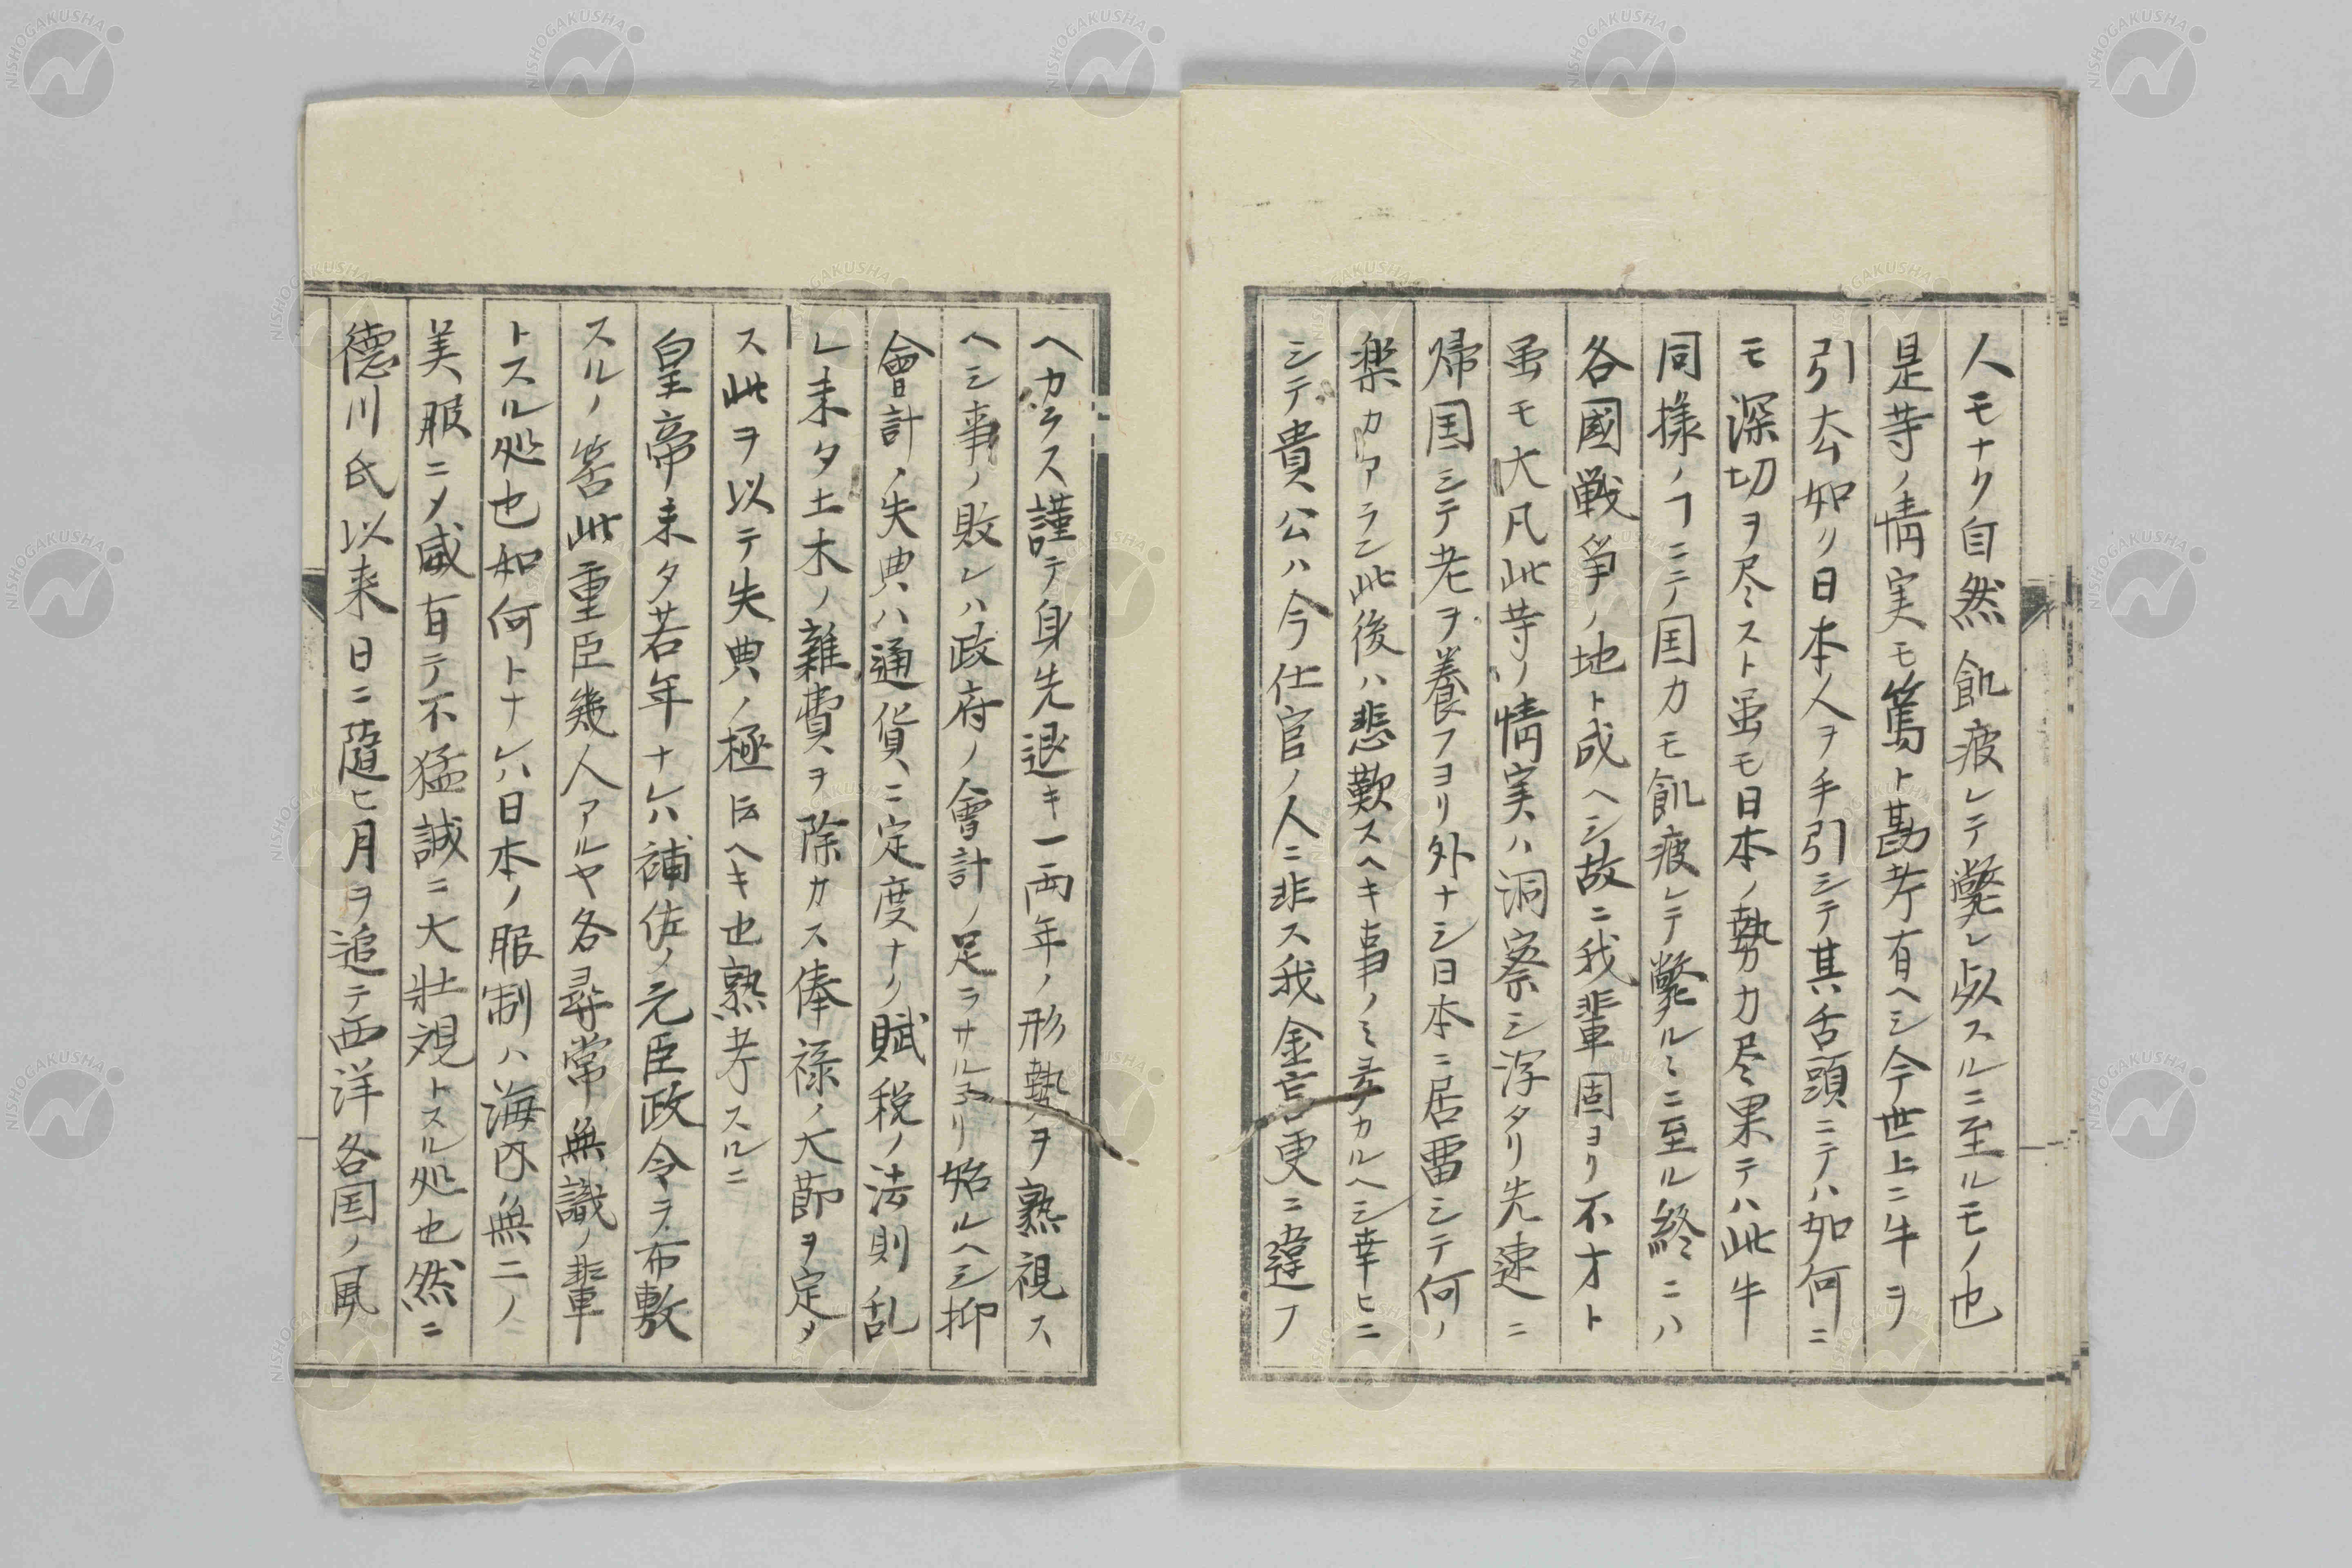 人モナク自然飢疲レテ斃レ歿スルニ至ルモノ也
是等ノ情実モ篤ト勘考有ヘシ今世上ニ牛ヲ
引夲如リ日本人ヲ手引シテ其舌頭ニテハ如何ニ
モ深切ヲ尽スト虽モ日本ノ勢力尽果テハ此牛
同様ノヿニテ国力モ飢疲レテ斃ルヽニ至ル終ニハ
各國戦爭ノ地ト成ヘシ故ニ我輩固ヨリ不才ト
虽モ大凡此等ノ情実ハ洞察シ浮タリ先速ニ
帰国シテ老ヲ養フヨリ外ナシ日本ニ居畱シテ何ノ
楽カアラン此後ハ悲歎スヘキ事ノミ多カルヘシ幸ヒニ
シテ貴公ハ今仕官ノ人ニ非ス我金言更ニ違フ
ヘカラス謹テ身先退キ一両年ノ形勢ヲ熟視ス
ヘシ事ノ敗レハ政府ノ會計ノ足ラサルヨリ始ルヘシ抑
會計ノ失典ハ通貨ニ定度ナク賦税ノ法則乱
レ未タ土木ノ雜費ヲ除カス俸禄ノ大節ヲ定メ
ス此ヲ以テ失典ノ極圧ヘキ也熟考スルニ
皇帝未タ若年ナレハ補佐ノ元臣政令ヲ布敷
スルノ筈此重臣幾人アルヤ各尋常無識ノ輩
トスル処也如何トナレハ日本ノ服制ハ海内無二ノ
美服ニメ威有テ不猛誠ニ大壮観トスル処也然ニ
德川氏以来日ニ隨ヒ月ヲ追テ西洋各国ノ風